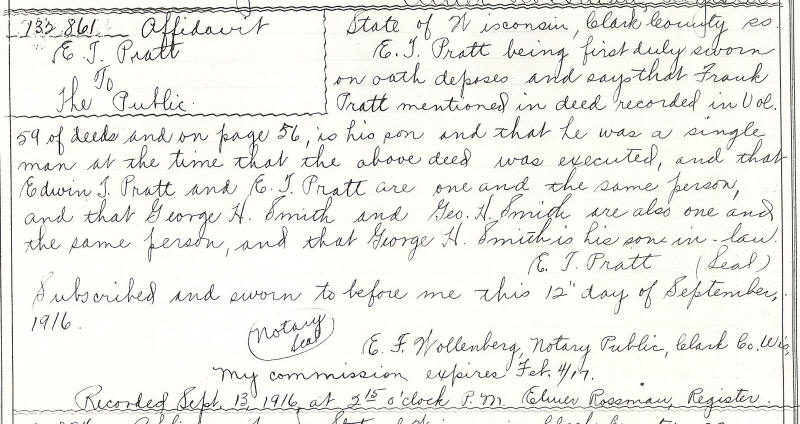 132861 Affidavit
E. T. Pratt
To
The Public.
State of Wisconsin, Clark County ss.
E. T. Pratt being first duly sworn
on oath deposes and says that Frank
Pratt mentioned in deed recorded in Vol.
59 of deeds and on page 56, is his son and that he was a single
man at the time that the above deed was executed, and that
Edwin T. Pratt and E. T. Pratt are one and the same person,
and that George H. Smith and Geo. H. Smith are also one and
the same person, and that George H. Smith is his son-in-law.
E. T. Pratt (Seal)
Subscribed and sworn to before me this 12" day of September,
1916.
Notary
Seal
E. F. Wollenberg, Notary Public, Clark Co. Wis,
My commission expires Feb. 4/17.
Recorded Sept. 13, 1916, at 2 15 o'clock P.M. Elmer Rossman, Register.